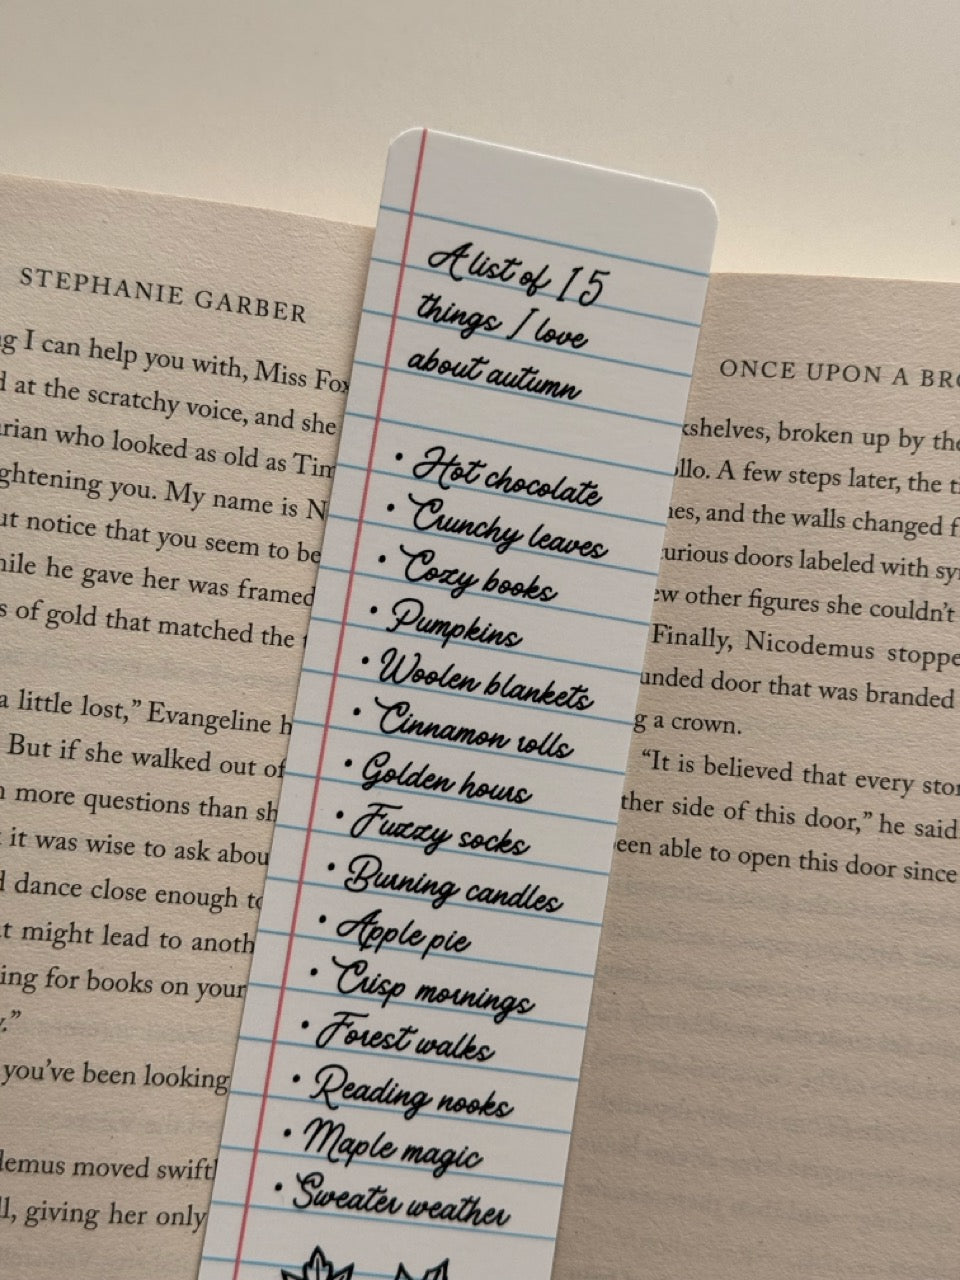 STEPHANIE GARBER
I can help you with, Miss
at the scratchy voice, and she
who looked as old as
you. My name is
notice that you seem to be
he gave her was framed
of gold that matched the
a little lost,” Evangeline
But if she walked out of
more questions than
it was wise to ask
dance close enough
might lead to
for books on your
you’ve been looking
moved
giving her only
A list of 15
things I love
about autumn
• Hot chocolate
• Crunchy leaves
• Cozy books
• Pumpkins
• Woolen blankets
• Cinnamon rolls
• Golden hours
• Fuzzy socks
• Burning candles
• Apple pie
• Crisp mornings
• Forest walks
• Reading nooks
• Maple magic
• Sweater weather
ONCE UPON A
broken up by
A few steps later, the
and the walls changed
doors labeled with
other figures she couldn’t
Finally, Nicodemus
door that was branded
a crown.
“It is believed that every
side of this door,” he said
able to open this door since